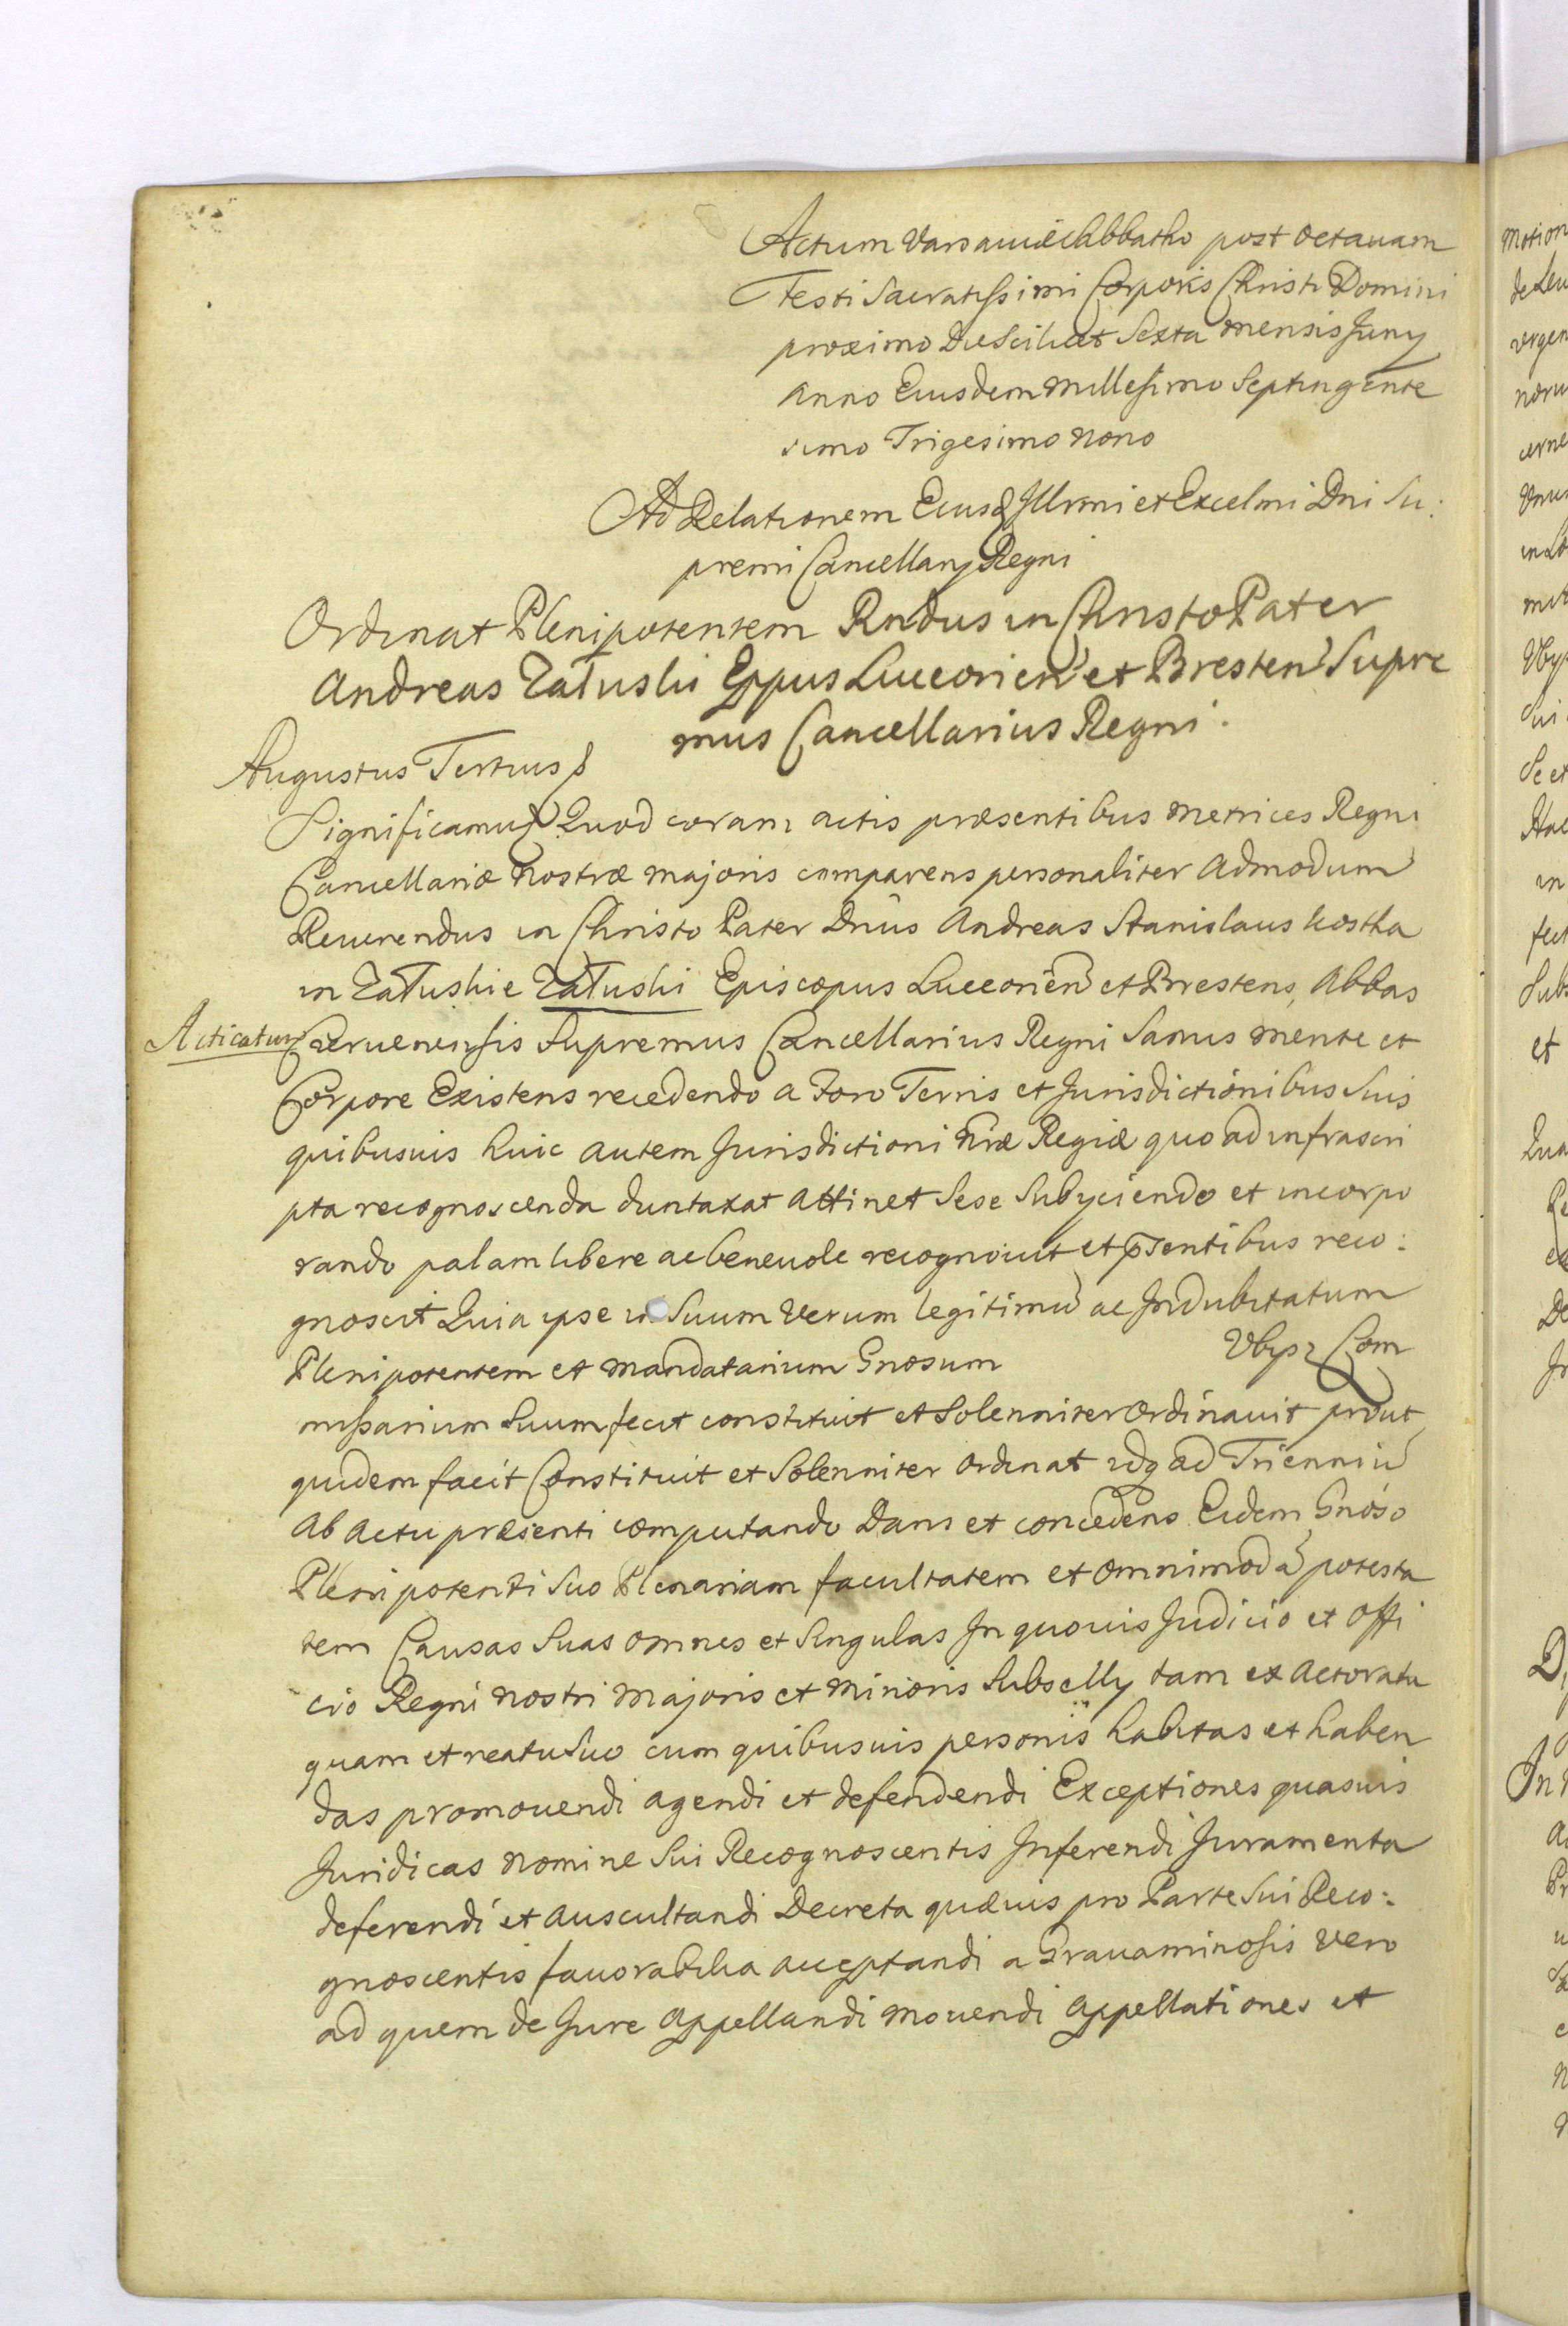 Actum Varsaviæ Sabbatho post Octavam
Festi Sacratissimi Corporis Christi Domini
proximo Die Scilicet Sexta mensis Juny
Anno Eiusdem Millesimo Septingente
simo Trigesimo Nono
Ad Relationem Eiusd Illrmi et Excelmi Dni Su:
premi Cancellary Regni
Ordinat Plenipotentem Rndus in Christo Pater
Andreas Załuski Eppus Luceorien et Bresten Supre
mus Cancellarius Regni.
Augustus Tertius
Significamus Quod coram actis præsentibus Metrices Regni
Cancellariæ Nostræ Majoris comparens personaliter Admodum
Reverendus in Christo Pater Dnus Andreas Stanislaus Kostka
in Załuskie Załuski Episcopus Luceorien et Brestens, Abbas
Acticatur
Czervenensis Supremus Cancellarius Regni Sanus mente et
Corpore Existens recedendo a Foro Terris et Jurisdictionibus Suis
quibusvis huic autem Jurisdictioni Nræ Regiæ quo ad infrascri
pta recognoscenda duntaxat Attinet Sese Subyciendo et incorpo
rando palam libere ac benevole recognovit et psentibus reco:
gnoscit Quia ipse in Suum Verum legitimu ac Indubitatum
Plenipotentem et Mandatarium Gnosum Ubysz Com
missarium Suum fecit constituit et Solenniter Ordinavit prout
quidem facit Constituit et Solenniter Ordinat idq ad Trienniu
Ab Actu præsenti computando Dans et concedens Eidem Gnoso
Plenipotenti Suo Plenariam facultatem et omnimoda potesta
tem Causas Suas omnes et Singulas In quovis Judicio et Offi
cio Regni Nostri Majoris et Minoris Subselly tam ex Actoratu
quam et reatu Suo cum quibusvis personis habitas et haben
das promovendi agendi et defendendi Exceptiones quasvis
Juridicas Nomine Sui Recognoscentis Inferendi Juramenta
deferendi et auscultandi Decreta quævis pro Parte Sui Reco:
gnoscentis favorabilia acceptandi a Gravaminosis Vero
ad quem de Jure Appellandi Movendi Appellationes et